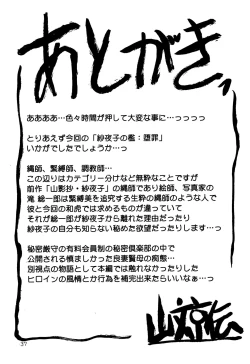 あとがき
ああああ…色々時間が押して大変な事に…っっっっ
とりあえず今回の「紗夜子の檻：堕罪」
いかがでしたでしょうか…っ
縄師、緊縛師、調教師…
この辺りはカテゴリー分けなど無粋なことですが
前作「山影抄・紗夜子」の縄師であり絵師、写真家の
滝 総一郎は緊縛美を追究する生粋の縄師のような人で
彼と今回の和虎では求めるものが違っていて
それが総一郎が紗夜子から離れた理由だったり
紗夜子の自分も知らない秘めた欲望だったりします…っ
秘密厳守の有料会員制の秘密倶楽部の中で
公開される慎ましかった良妻賢母の痴態…
別視点の物語として本編では触れなかったりした
ヒロインの風情とか行為を補完出来たらいいなぁ…っ
37